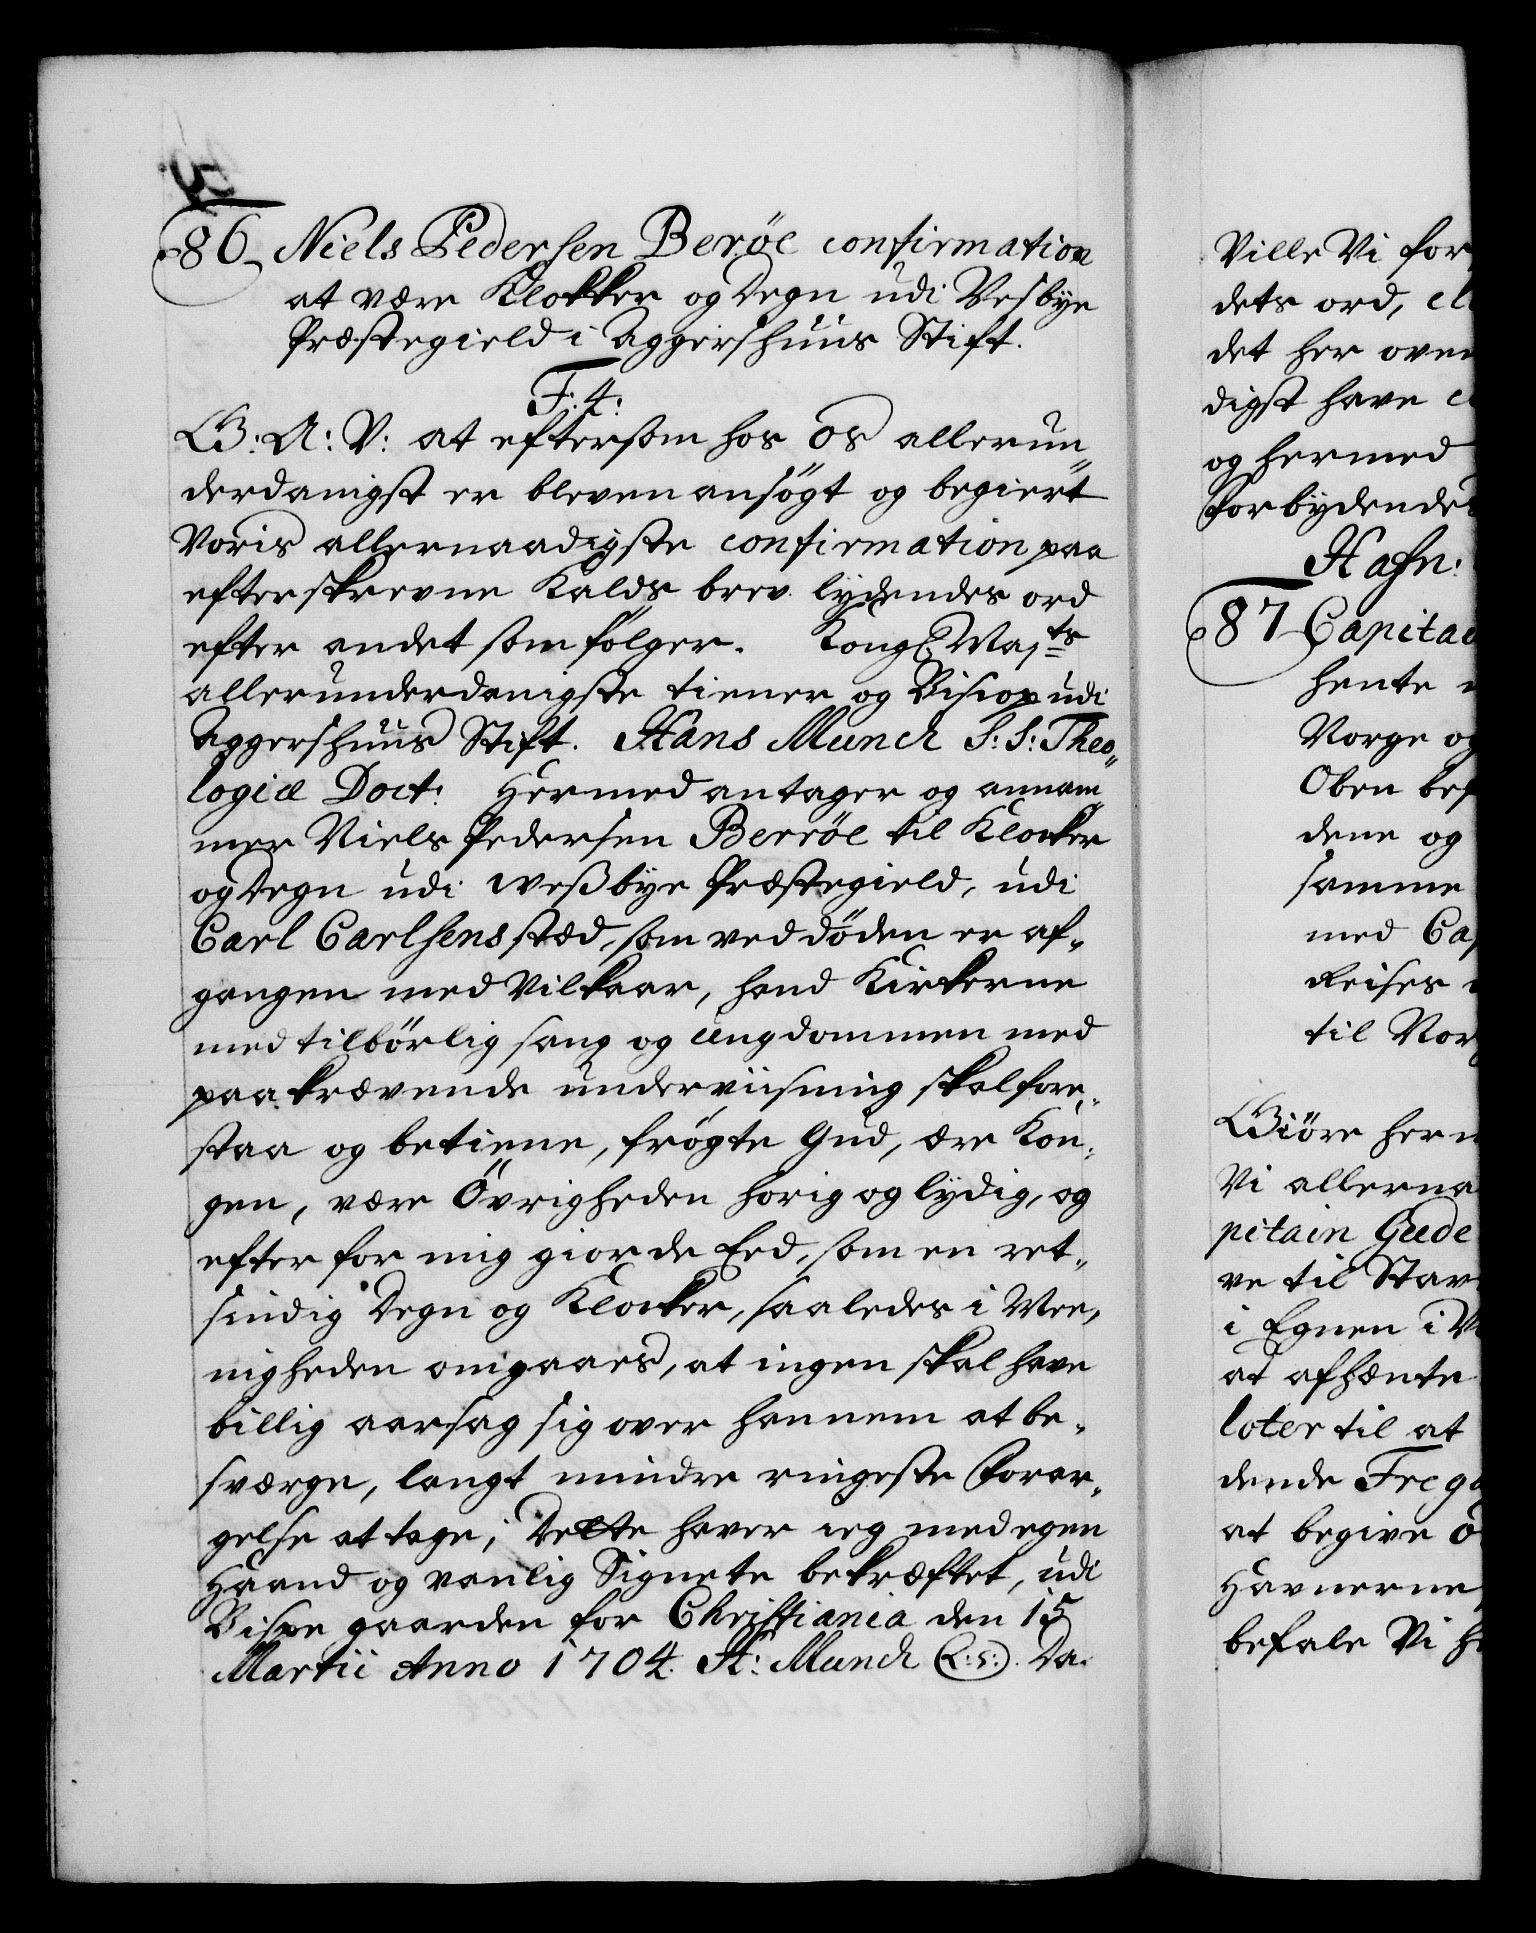 86 Niels Pedersen Beröe confirmation
at være Klokker og Degn udi Vesbye
Præstegield i Aggershuus Stift.
F: 4:
G: A: V: at eftersom hos os allerun-
derdanigst er bleven ansögt og begiert
Voris allernaadigste confirmation paa
efterskrevne Kalds brev lydendes ord
efter andet som fölger. Kongl Majts
allerunderdanigste tiener og Biscop udi
Aggershuus Stift. Hans Munch S: S: Theo-
logiæ Doct: Hermed antager og annam-
mer Niels Pedersen Berröe til Klocker
og Degn udi Weßbye Præstegield, udi
Carl Carlsens stæd, som ved döden er af-
gangen med Vilkaar, hand Kirkerne
med tilbörlig sang og ungdommen med
paakrævende underviisning skal fore-
staa og betiene, frögte Gud, ære Kon-
gen, være Övrigheden hörig og lydig, og
efter for mig giorde Eed, som en ret-
sindig Degn og Klocker, saaledes i Mee-
nigheden omgaaes, at ingen skal have
billig aarsag sig over hannem at be-
sværge, langt mindre ringeste forar-
gelse at tage; Dette haver ieg med egen
Haand og vanlig Signete bekræftet, udi
Bispe gaarden for Christiania den 15
Martii Anno 1704. H: Munch (L: S:). Da.
Ville Vi for
dets ord,
det her oven
digst have
og hermed
forbydendes
Hafn:
87 Capitai
hente
Norge og
Oben bef
dene og
samme
med Cap
Reises
til Nor
Giöre herm
Vi allerna
pitain Gude
ve til Stav
i Egnen i
at afhænte
loter til at
dende Frega
at begive
Havnerne
befale Vi